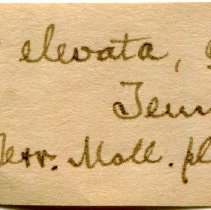 elevata,
Tenn
Terr. Moll. pl